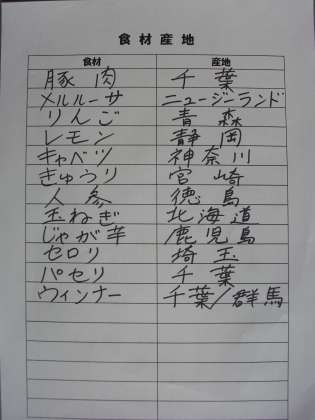 食材産地
食材 産地
豚肉 千葉
メルルーサ ニュージーランド
りんご 青森
レモン 静岡
キャベツ 神奈川
きゅうり 宮崎
人参 徳島
玉ねぎ 北海道
じゃが芋 鹿児島
セロリ 埼玉
パセリ 千葉
ウィンナー 千葉/群馬